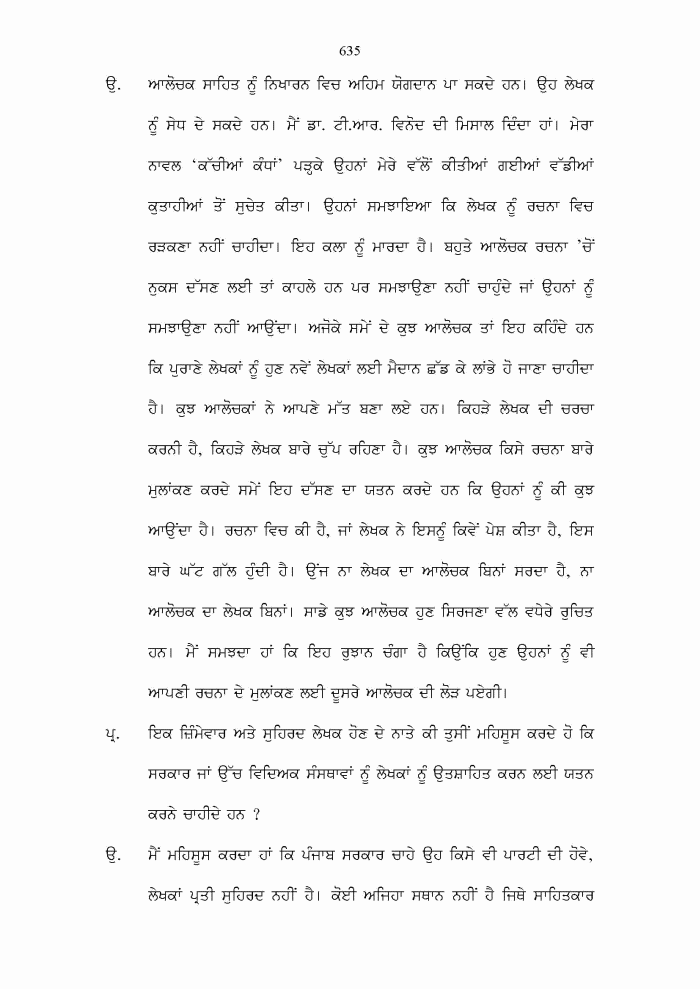 635
ਉ. ਆਲੋਚਕ ਸਾਹਿਤ ਨੂੰ ਨਿਖਾਰਨ ਵਿਚ ਅਹਿਮ ਯੋਗਦਾਨ ਪਾ ਸਕਦੇ ਹਨ। ਉਹ ਲੇਖਕ
ਨੂੰ ਸੇਧ ਦੇ ਸਕਦੇ ਹਨ। ਮੈਂ ਡਾ. ਟੀ.ਆਰ. ਵਿਨੋਦ ਦੀ ਮਿਸਾਲ ਦਿੰਦਾ ਹਾਂ। ਮੇਰਾ
ਨਾਵਲ ‘ਕੱਚੀਆਂ ਕੰਧਾਂ’ ਪੜ੍ਹਕੇ ਉਹਨਾਂ ਮੇਰੇ ਵੱਲੋਂ ਕੀਤੀਆਂ ਗਈਆਂ ਵੱਡੀਆਂ
ਕੁਤਾਹੀਆਂ ਤੋਂ ਸੁਚੇਤ ਕੀਤਾ। ਉਹਨਾਂ ਸਮਝਾਇਆ ਕਿ ਲੇਖਕ ਨੂੰ ਰਚਨਾ ਵਿਚ
ਰੜਕਣਾ ਨਹੀਂ ਚਾਹੀਦਾ। ਇਹ ਕਲਾ ਨੂੰ ਮਾਰਦਾ ਹੈ। ਬਹੁਤੇ ਆਲੋਚਕ ਰਚਨਾ ’ਚੋਂ
ਨੁਕਸ ਦੱਸਣ ਲਈ ਤਾਂ ਕਾਹਲੇ ਹਨ ਪਰ ਸਮਝਾਉਣਾ ਨਹੀਂ ਚਾਹੁੰਦੇ ਜਾਂ ਉਹਨਾਂ ਨੂੰ
ਸਮਝਾਉਣਾ ਨਹੀਂ ਆਉਂਦਾ। ਅਜੋਕੇ ਸਮੇਂ ਦੇ ਕੁਝ ਆਲੋਚਕ ਤਾਂ ਇਹ ਕਹਿੰਦੇ ਹਨ
ਕਿ ਪੁਰਾਣੇ ਲੇਖਕਾਂ ਨੂੰ ਹੁਣ ਨਵੇਂ ਲੇਖਕਾਂ ਲਈ ਮੈਦਾਨ ਛੱਡ ਕੇ ਲਾਂਭੇ ਹੋ ਜਾਣਾ ਚਾਹੀਦਾ
ਹੈ। ਕੁਝ ਆਲੋਚਕਾਂ ਨੇ ਆਪਣੇ ਮੱਤ ਬਣਾ ਲਏ ਹਨ। ਕਿਹੜੇ ਲੇਖਕ ਦੀ ਚਰਚਾ
ਕਰਨੀ ਹੈ, ਕਿਹੜੇ ਲੇਖਕ ਬਾਰੇ ਚੁੱਪ ਰਹਿਣਾ ਹੈ। ਕੁਝ ਆਲੋਚਕ ਕਿਸੇ ਰਚਨਾ ਬਾਰੇ
ਮੁਲਾਂਕਣ ਕਰਦੇ ਸਮੇਂ ਇਹ ਦੱਸਣ ਦਾ ਯਤਨ ਕਰਦੇ ਹਨ ਕਿ ਉਹਨਾਂ ਨੂੰ ਕੀ ਕੁਝ
ਆਉਂਦਾ ਹੈ। ਰਚਨਾ ਵਿਚ ਕੀ ਹੈ, ਜਾਂ ਲੇਖਕ ਨੇ ਇਸਨੂੰ ਕਿਵੇਂ ਪੇਸ਼ ਕੀਤਾ ਹੈ, ਇਸ
ਬਾਰੇ ਘੱਟ ਗੱਲ ਹੁੰਦੀ ਹੈ। ਉਂਜ ਨਾ ਲੇਖਕ ਦਾ ਆਲੋਚਕ ਬਿਨਾਂ ਸਰਦਾ ਹੈ, ਨਾ
ਆਲੋਚਕ ਦਾ ਲੇਖਕ ਬਿਨਾਂ। ਸਾਡੇ ਕੁਝ ਆਲੋਚਕ ਹੁਣ ਸਿਰਜਣਾ ਵੱਲ ਵਧੇਰੇ ਰੁਚਿਤ
ਹਨ। ਮੈਂ ਸਮਝਦਾ ਹਾਂ ਕਿ ਇਹ ਰੁਝਾਨ ਚੰਗਾ ਹੈ ਕਿਉਂਕਿ ਹੁਣ ਉਹਨਾਂ ਨੂੰ ਵੀ
ਆਪਣੀ ਰਚਨਾ ਦੇ ਮੁਲਾਂਕਣ ਲਈ ਦੂਸਰੇ ਆਲੋਚਕ ਦੀ ਲੋੜ ਪਏਗੀ।
ਪ੍ਰ. ਇਕ ਜ਼ਿੰਮੇਵਾਰ ਅਤੇ ਸੁਹਿਰਦ ਲੇਖਕ ਹੋਣ ਦੇ ਨਾਤੇ ਕੀ ਤੁਸੀਂ ਮਹਿਸੂਸ ਕਰਦੇ ਹੋ ਕਿ
ਸਰਕਾਰ ਜਾਂ ਉੱਚ ਵਿਦਿਅਕ ਸੰਸਥਾਵਾਂ ਨੂੰ ਲੇਖਕਾਂ ਨੂੰ ਉਤਸ਼ਾਹਿਤ ਕਰਨ ਲਈ ਯਤਨ
ਕਰਨੇ ਚਾਹੀਦੇ ਹਨ ?
ਉ. ਮੈਂ ਮਹਿਸੂਸ ਕਰਦਾ ਹਾਂ ਕਿ ਪੰਜਾਬ ਸਰਕਾਰ ਚਾਹੇ ਉਹ ਕਿਸੇ ਵੀ ਪਾਰਟੀ ਦੀ ਹੋਵੇ,
ਲੇਖਕਾਂ ਪ੍ਰਤੀ ਸੁਹਿਰਦ ਨਹੀਂ ਹੈ। ਕੋਈ ਅਜਿਹਾ ਸਥਾਨ ਨਹੀਂ ਹੈ ਜਿਥੇ ਸਾਹਿਤਕਾਰ